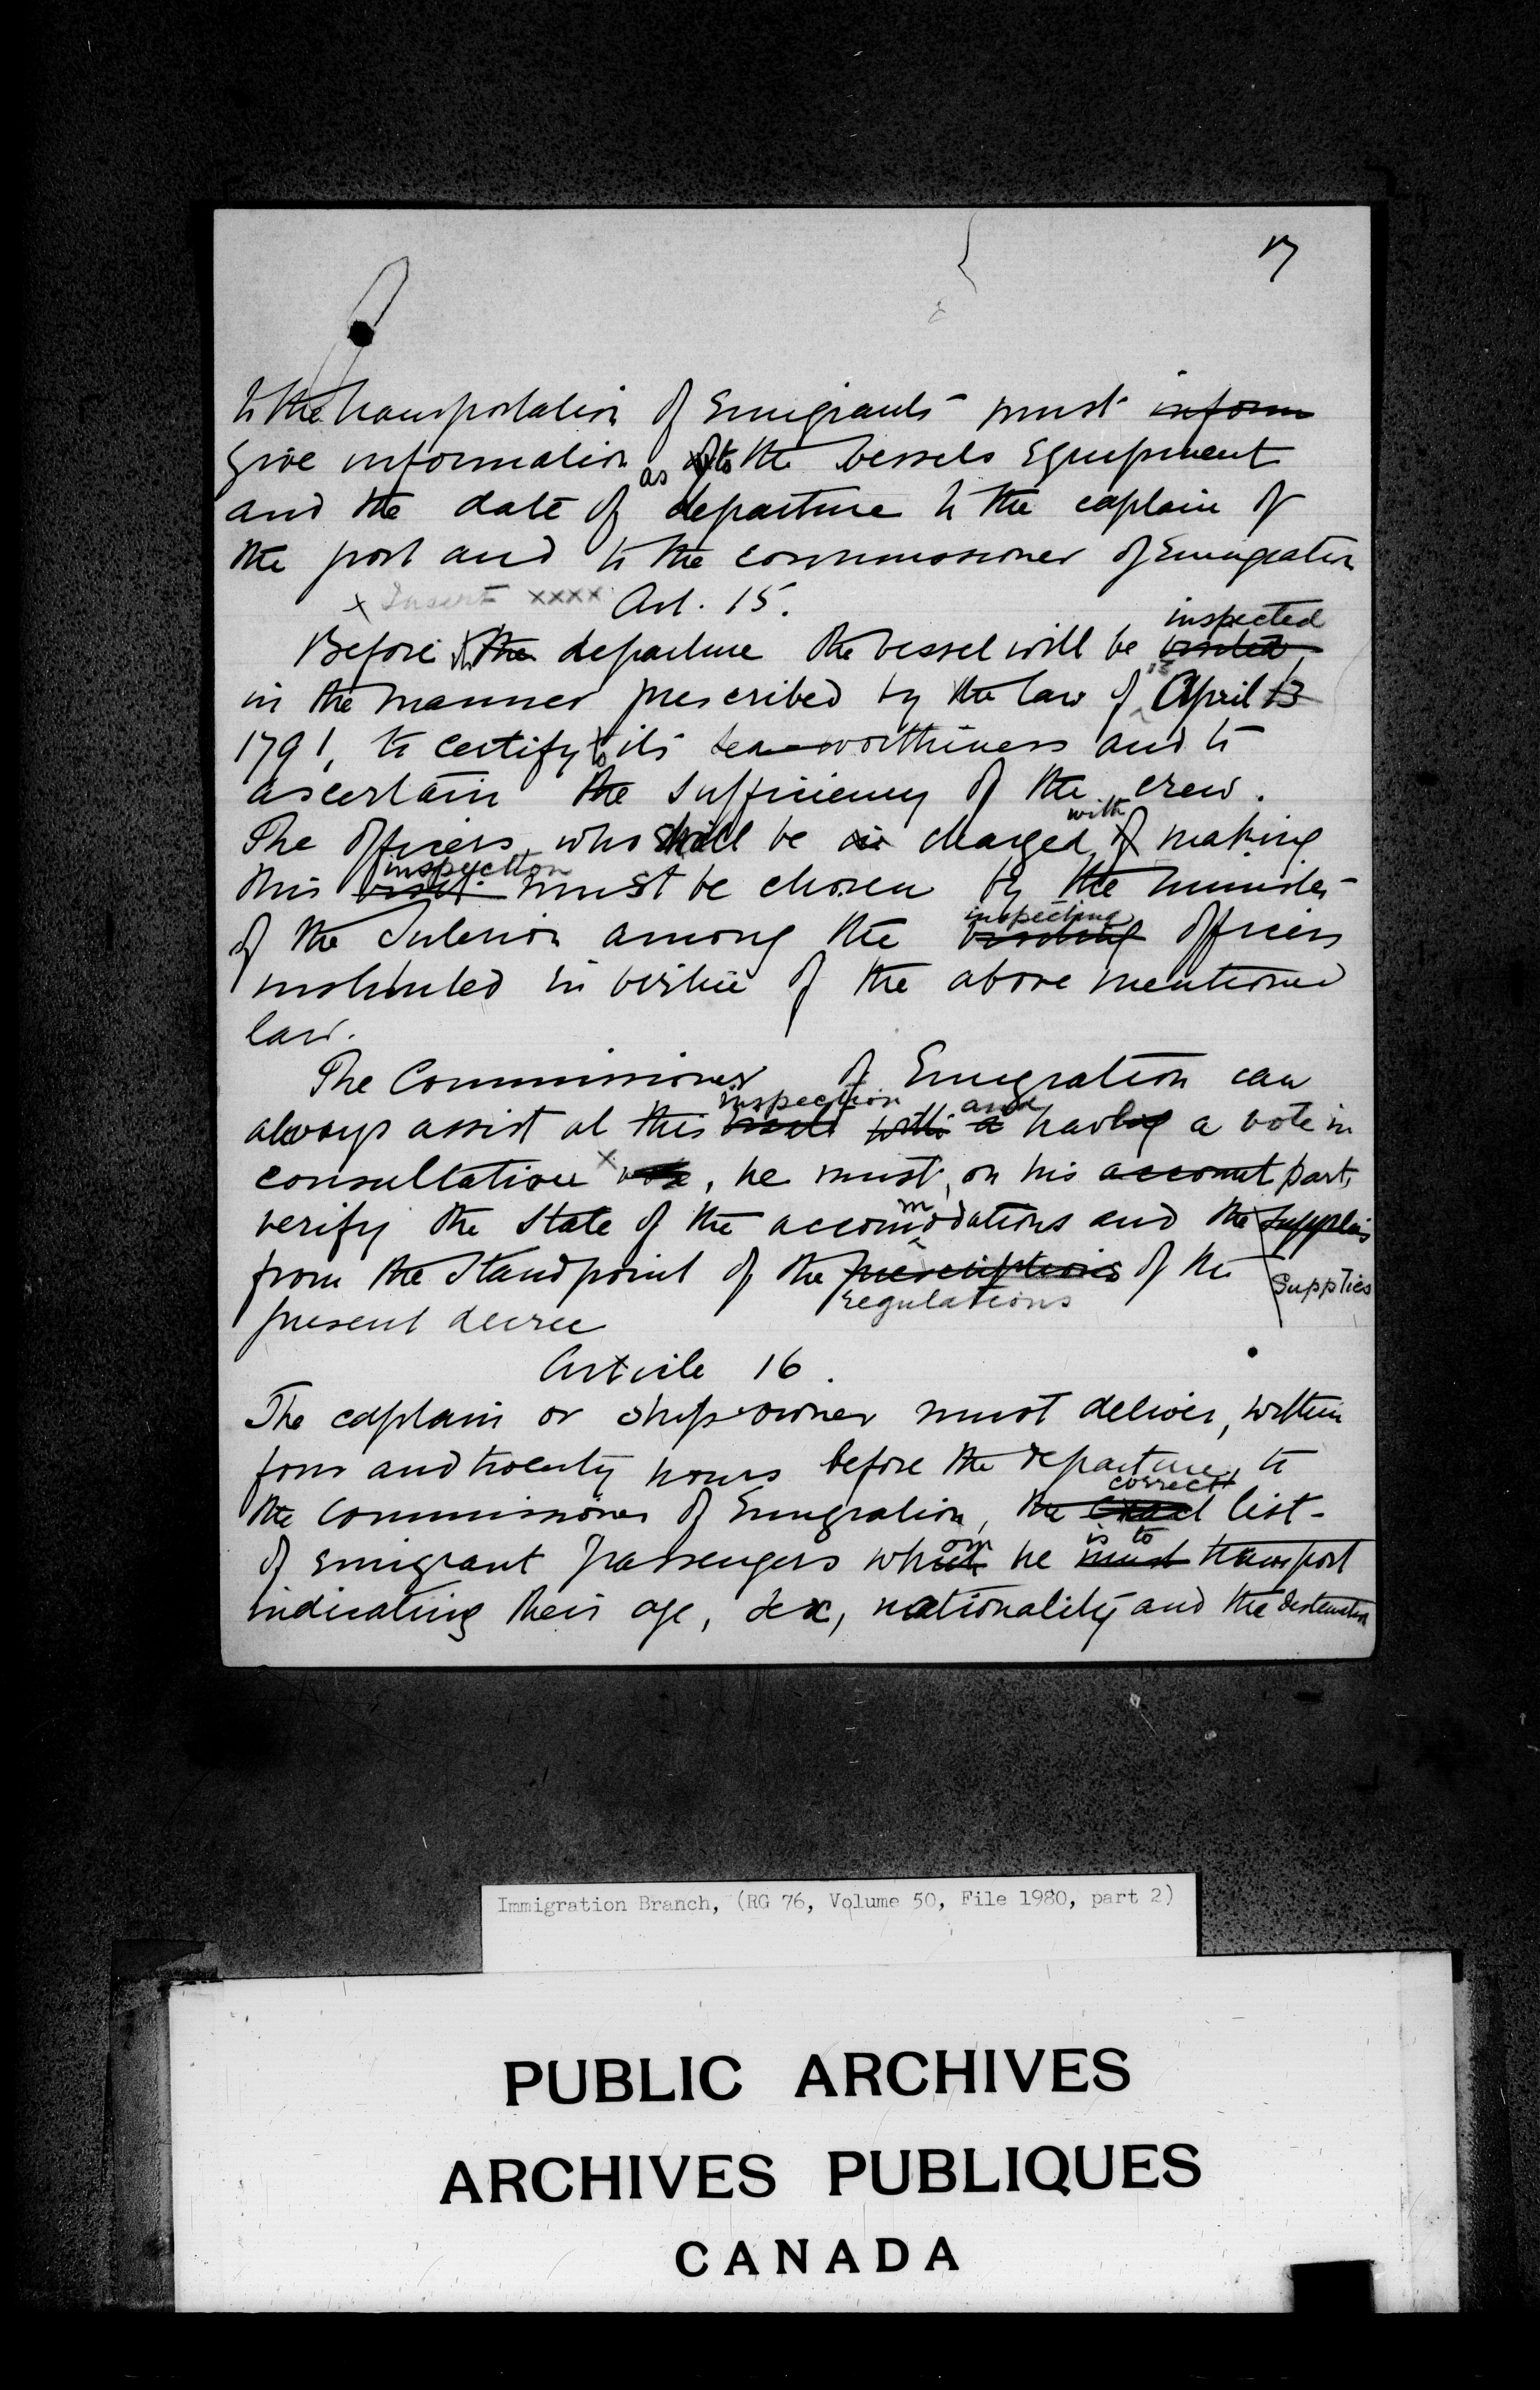 17
to the transportation of Emigrants must inform
give information as of to the vessels Equipment
and the date of departure to the captain of
the port and to the commissioner of Emigration
x Insert xxxx Art. 15.
inspected
Before the departure the vessel will be visited,
in the manner prescribed by the law of April 13
1791, to certify to its sea-worthiness and to
ascertain the sufficiency of the crew.
with
The officers, who shall be in charged, of making
inspection
this visit must be chosen by the minister
inspecting
of the Interior among the visiting officers
instituted in virtue of the above mentioned
law.
The Commissioner of Emigration can
inspection and
always assist at this visit with a having a vote in
consultation x , he must, on his account part,
m
verify the state of the accomodations and the supplies
from the standpoint of the prescriptions of the Supplies
regulations
present decree
Article 16.
The captain or ship-owner must deliver, within
four and twenty hours before the departure, to
correct
the Commissioner of Emigration, the exact list
om is to
of emigrant passengers which he must transport
indicating their age, sex, nationality and the destination
Immigration Branch, (RG 76, Volume 50, File 1980, part 2)
PUBLIC ARCHIVES
ARCHIVES PUBLIQUES
CANADA